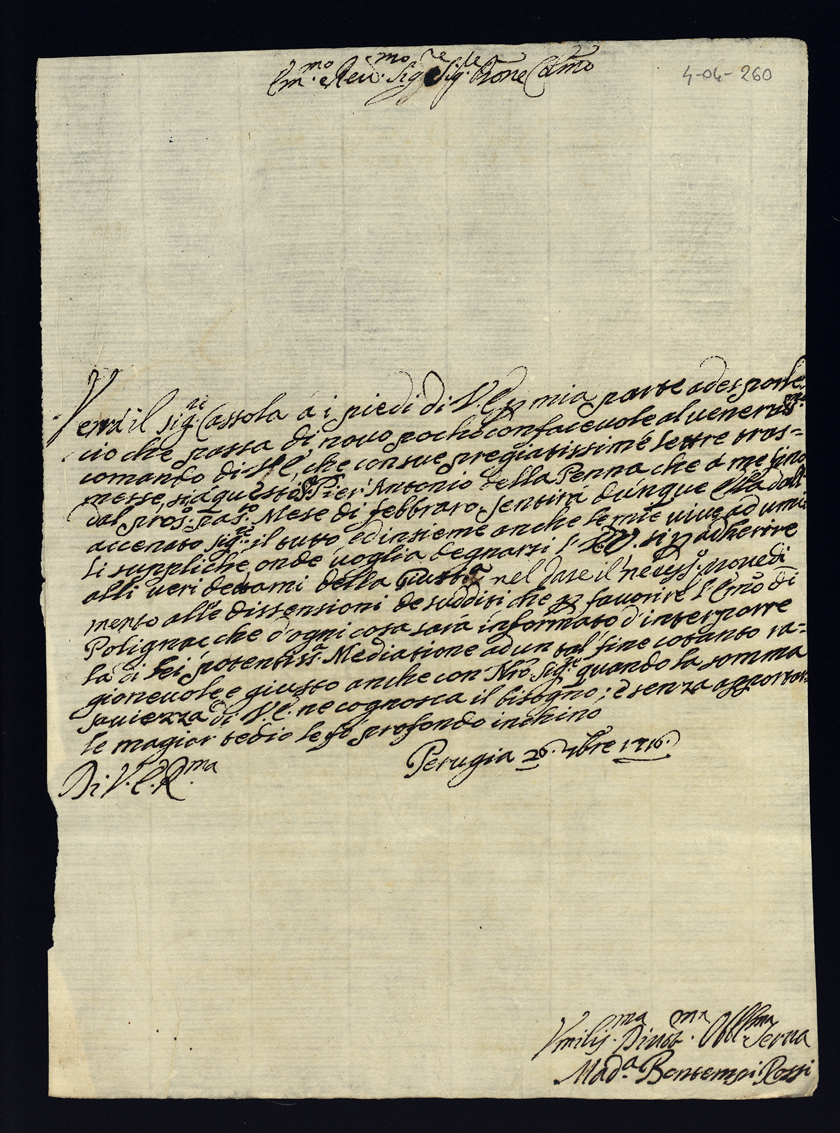 Em.mo e Rev.mo Sig.re Sig.re e Prone Col.mo
4-04-260
Verrà il Sig.re Cassola a i piedi di V. E. p mia parte ad esporle
ciò che passa di novo poché confacevole al venerat.mo
comando di V. E., che con sue pregiatissime lettere tras=
messe, si à questo S.r Pier' Antonio della Penna che à me fino
dal pros.o pas.to Mese di febbraro, Sentirà dunque Ella dall'
accenato Sig.re il tutto ed insieme anche le mie vive ad umi
li suppliche, onde voglia degnarsi l' E. V. si p adherire
alli veri dettami della Giustit.a nel dare il necess.o provedi
mento alle dissensioni de sudditi che p favorire l'Em.o di
Polignac che d'ogni cosa sarà informato d'interporre
la di Lei potentiss.a Mediatione ad un tal fine cotanto ra=
gionevole, e giusto anche con Nro Sig.re quando la somma
saviezza di V. E. ne cognosca il bisogno; e senza apportar
le magior tedio le fò profondo inchino
Di V. E. R.ma
Perugia 26. 7bre 1716.
Vmiliss.ma Divot.ma Obl.ma Serva
Mad.a Bontempi Rossi